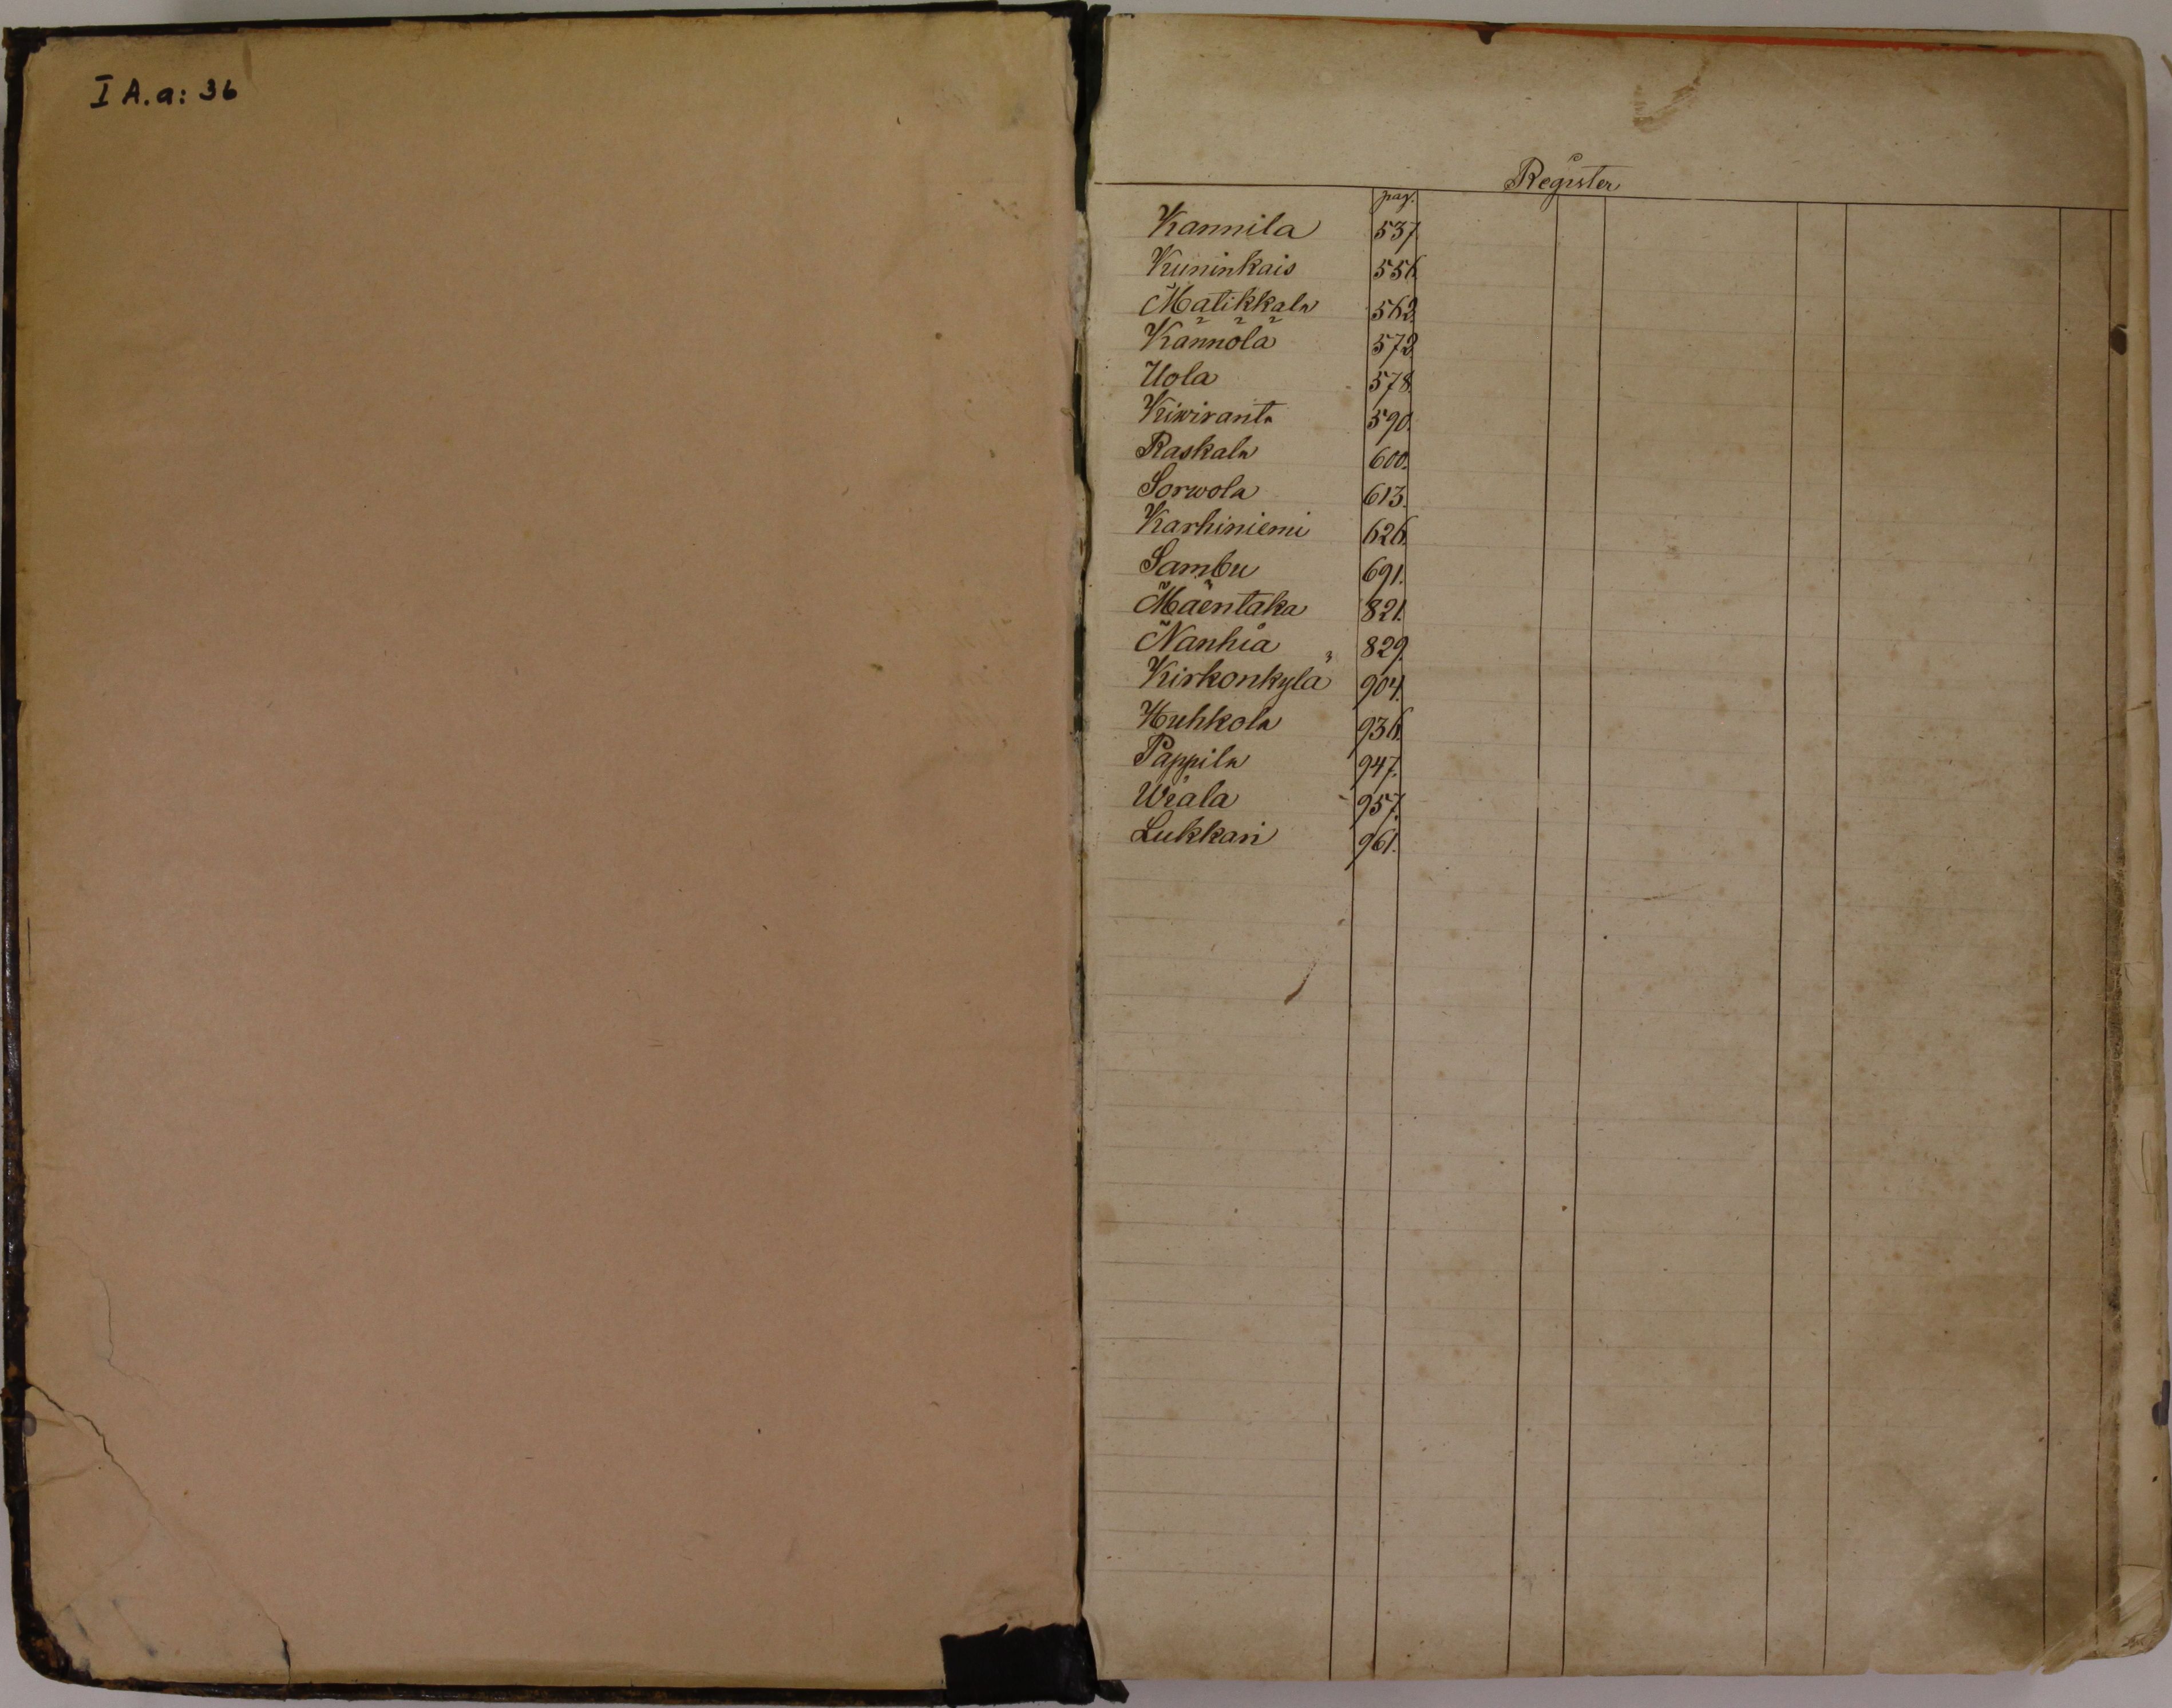 I A.a: 36
Register
pag.
Kannila 537.
Kuninkais 556.
Matikkala 562.
Kännölä 572.
Uola 578.
Kiwiranta 590.
Raskala 600.
Sorwola 613.
Karhiniemi 626.
Sambu 691.
Mäentaka 821.
Nanhia 829.
Kirkonkylä 904.
Huhkola 936.
Pappila 947.
Wiala 957.
Lukkari 961.